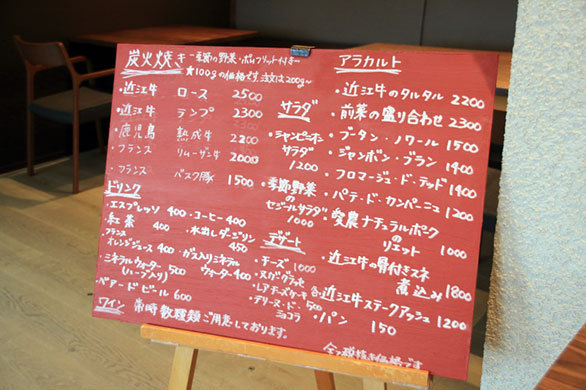 炭火焼き -季節の野菜・ポムフリット付き-
★100gの価格です、注文は200g~
・近江牛 ロース 2500
・近江牛 ランプ 2300
・鹿児島 熟成牛 2200
・フランス リムーザン牛 2000
・フランス バスク豚 1500
ドリンク
・エスプレッソ 400 ・コーヒー 400
・紅茶 400 ・水出しダージリン 450
フランス
オレンジジュース 400 ・ガス入りミネラル
ウォーター 400
・ミネラルウォーター 500
(ハーフ入り)
・ベアードビール 600
ワイン 常時数種類ご用意しております。
サラダ
・シャンピニオン
サラダ
1200
・季節野菜
の
セジールサラダ
1000
デザート
・チーズ 1000
・ヌガーグラッセ
・レアチーズケーキ 各
・テリーヌ・ド・ 500
ショコラ
・パン 150
アラカルト
・近江牛のタルタル 2200
・前菜の盛り合わせ 2300
・ブータン・ノワール 1500
・ジャンボン・ブラン 1400
・フロマージュ・ド・テッド 1400
・パテ・ド・カンパーニュ 1200
・愛農ナチュラルポーク
の
リエット 1000
・近江牛の骨付きスネ
煮込み 1800
・近江牛ステークアッシェ 1200
全て税抜き価格です